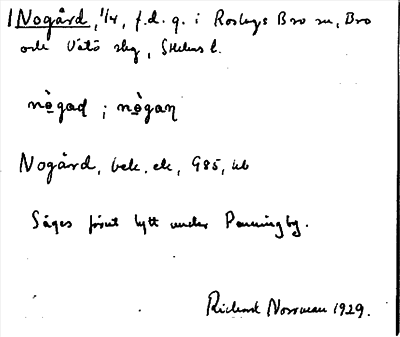 Nogård, 1/4, f.d. g. i Roslags Bro sn, Bro
och Vätö slg, Sthlms l.
nògad ; nògaɳ
Nogård, bek. ek, G85, kb
Säges förut lytt under Penningby.
Richard Norrman 1929.